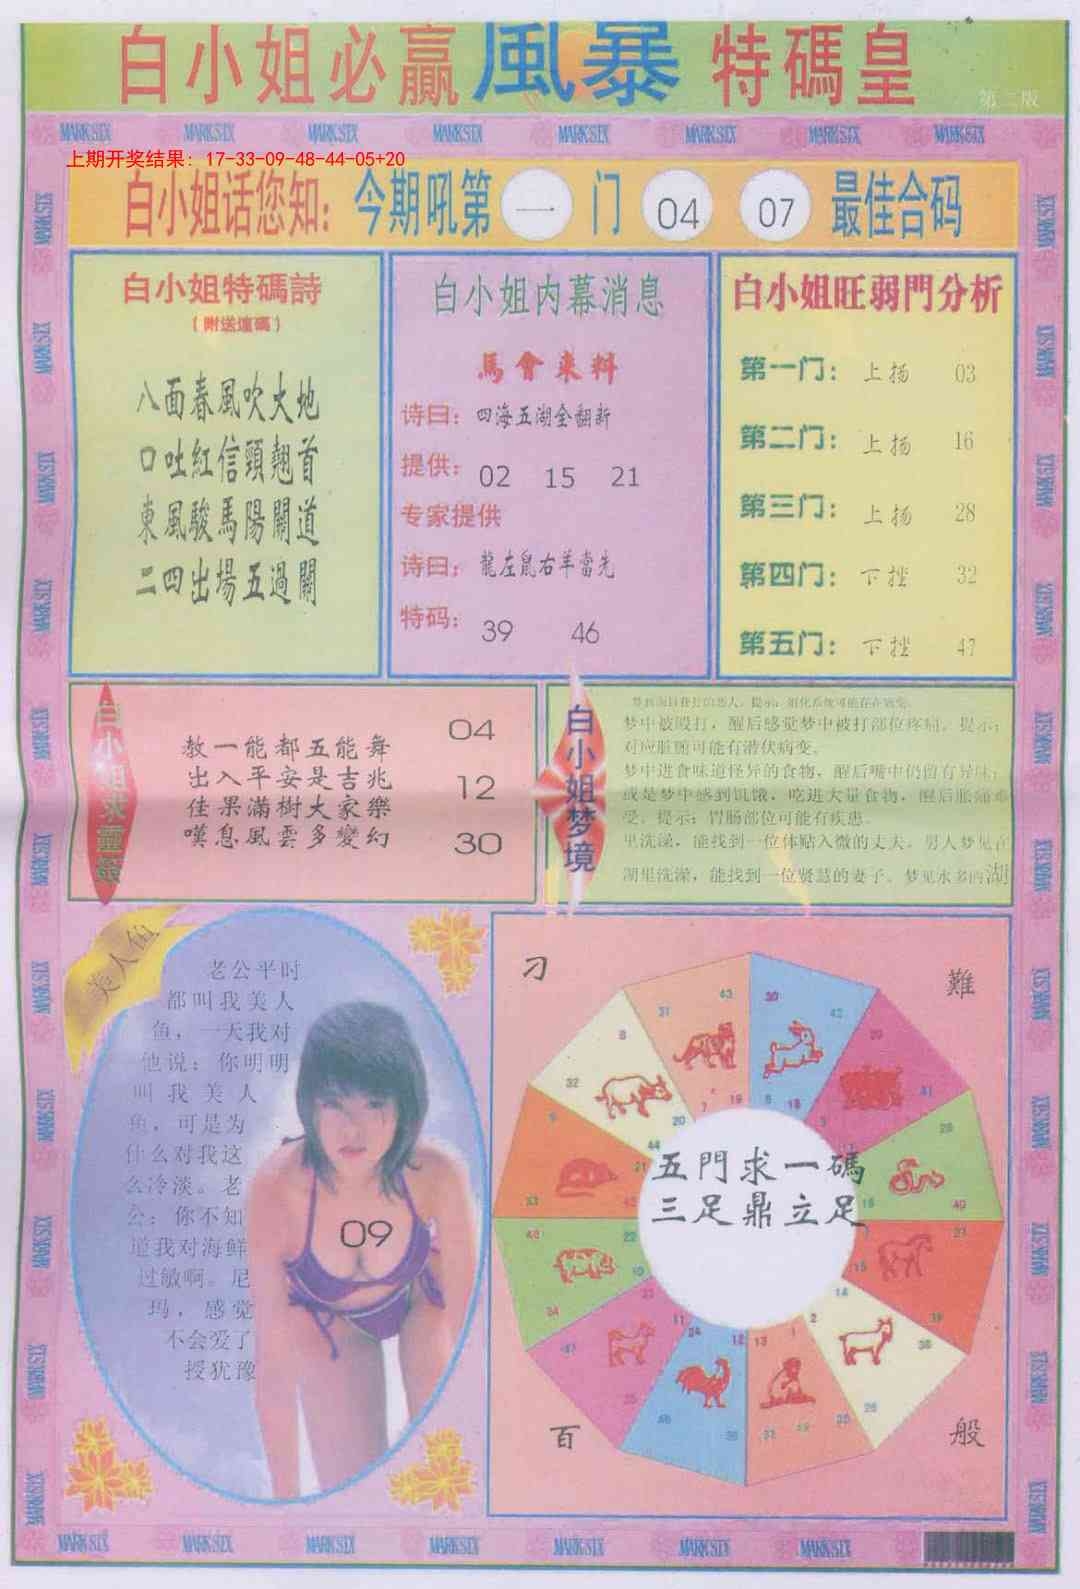 白小姐必贏 風暴 特碼皇
第二版
MARK SIX MARK SIX MARK SIX MARK SIX MARK SIX MARK SIX MARK SIX MARK SIX
上期开奖结果：17-33-09-48-44-05+20
白小姐话您知：今期吼第 一 门 04 07 最佳合码
白小姐特碼詩
八面春風吹大地
口吐紅信頸翹首
東風駿馬陽關道
二四出場五過關
白小姐内幕消息
馬會来料
诗曰：四海五湖全翻新
提供：02 15 21
专家提供
诗曰：龍左鼠右羊當先
特码：39 46
白小姐旺弱門分析
第一门：上扬 03
第二门：上扬 16
第三门：上扬 28
第四门：下挫 32
第五门：下挫 47
白小姐求靈簽
教一能都五能舞
出入平安是吉兆
佳果滿樹大家樂
嘆息風雲多變幻
04
12
30
白小姐梦境
梦中被殴打，醒后感觉梦中被打部位疼痛。提示：
对应脏腑可能有潜伏病变。
梦中进食味道怪异的食物，醒后嘴中仍留有异味；
或是梦中感到饥饿，吃进大量食物，醒后胀痛难
受。提示：胃肠部位可能有疾患。
里洗澡，能找到一位体贴入微的丈夫。男人梦见在
湖里洗澡，能找到一位贤慧的妻子。梦见水多的湖
美人鱼
老公平时
都叫我美人
鱼，一天我对
他说：你明明
叫我美人
鱼，可是为
什么对我这
么冷淡。老
公：你不知
道我对海鲜
过敏啊。尼
玛，感觉
不会爱了
授犹豫
09
刁 難
五門求一碼
三足鼎立足
百 般
MARK SIX MARK SIX MARK SIX MARK SIX MARK SIX MARK SIX MARK SIX